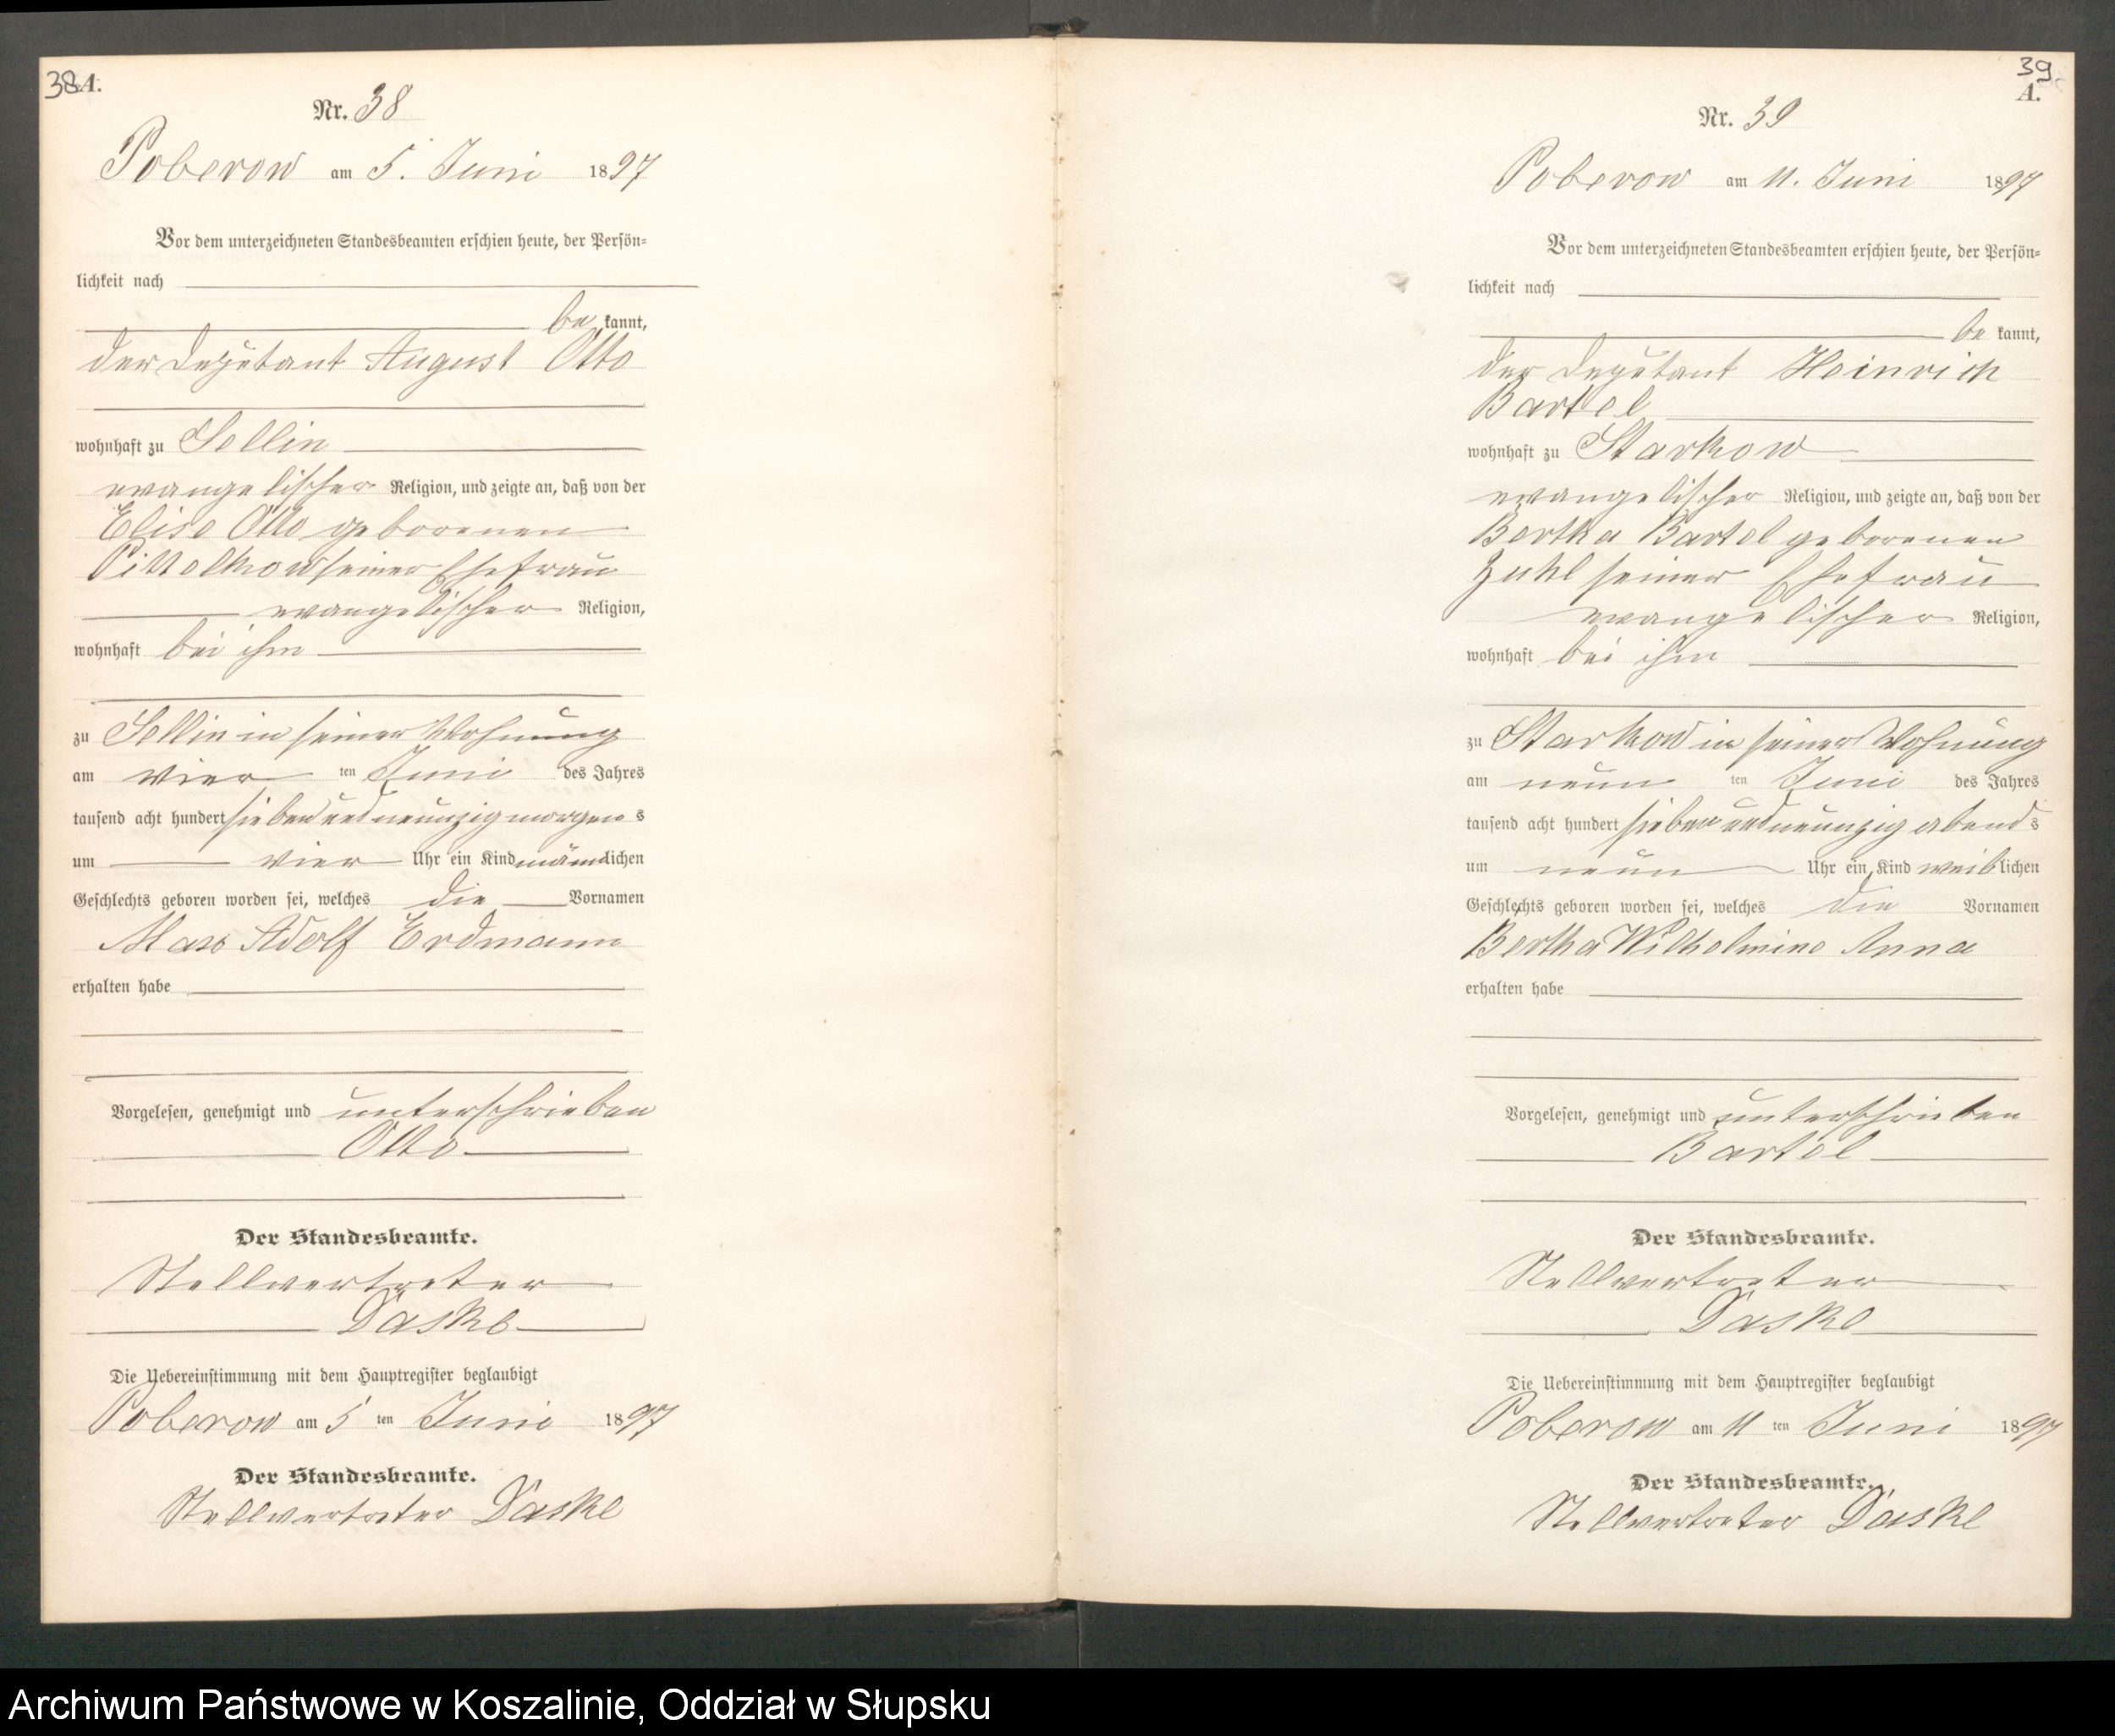 38 A.
Nr. 38
Poberow am 5. Juni 1897
Vor dem unterzeichneten Standesbeamten erschien heute, der Persön-
lichkeit nach
be kannt,
der Deputant August Otto
wohnhaft zu Sellin
evangelischer Religion, und zeigte an, daß von der
Elise Otto geborenen
Pittelkow seiner Ehefrau
evangelischer Religion,
wohnhaft bei ihm
zu Sellin in seiner Wohnung
am vier ten Juni des Jahres
tausend acht hundert sieben und neunzig morgens
um vier Uhr ein Kind männlichen
Geschlechts geboren worden sei, welches die Vornamen
Max Adolf Erdmann
erhalten habe
Vorgelesen, genehmigt und unterschrieben
Otto
Der Standesbeamte.
Stellvertreter
Daske
Die Uebereinstimmung mit dem Hauptregister beglaubigt
Poberow am 5 ten Juni 1897
Der Standesbeamte.
Stellvertreter Daske
39
A.
Nr. 39
Poberow am 11. Juni 1897
Vor dem unterzeichneten Standesbeamten erschien heute, der Persön-
lichkeit nach
be kannt,
der Deputant Heinrich
Bartel
wohnhaft zu Starkow
evangelischer Religion, und zeigte an, daß von der
Bertha Bartel geborenen
Zuhl seiner Ehefrau
evangelischer Religion,
wohnhaft bei ihm
zu Starkow in seiner Wohnung
am neun ten Juni des Jahres
tausend acht hundert sieben und neunzig abends
um neun Uhr ein Kind weiblichen
Geschlechts geboren worden sei, welches die Vornamen
Bertha Wilhelmine Anna
erhalten habe
Vorgelesen, genehmigt und unterschrieben
Bartel
Der Standesbeamte.
Stellvertreter
Daske
Die Uebereinstimmung mit dem Hauptregister beglaubigt
Poberow am 11 ten Juni 1897
Der Standesbeamte.
Stellvertreter Daske
Archiwum Państwowe w Koszalinie, Oddział w Słupsku